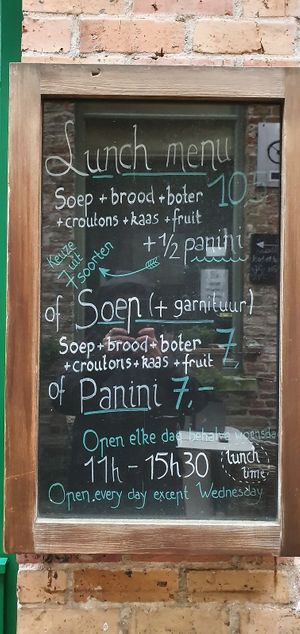 Lunch menu
Soep + brood + boter 10,5
+ croutons + kaas + fruit
+ 1/2 panini
Keuze
uit
7 soorten
of Soep (+ garnituur)
Soep + brood + boter 7,-
+ croutons + kaas + fruit
of Panini 7,-
Open elke dag behalve woensdag
11h - 15h30 lunch
time
Open every day except Wednesday